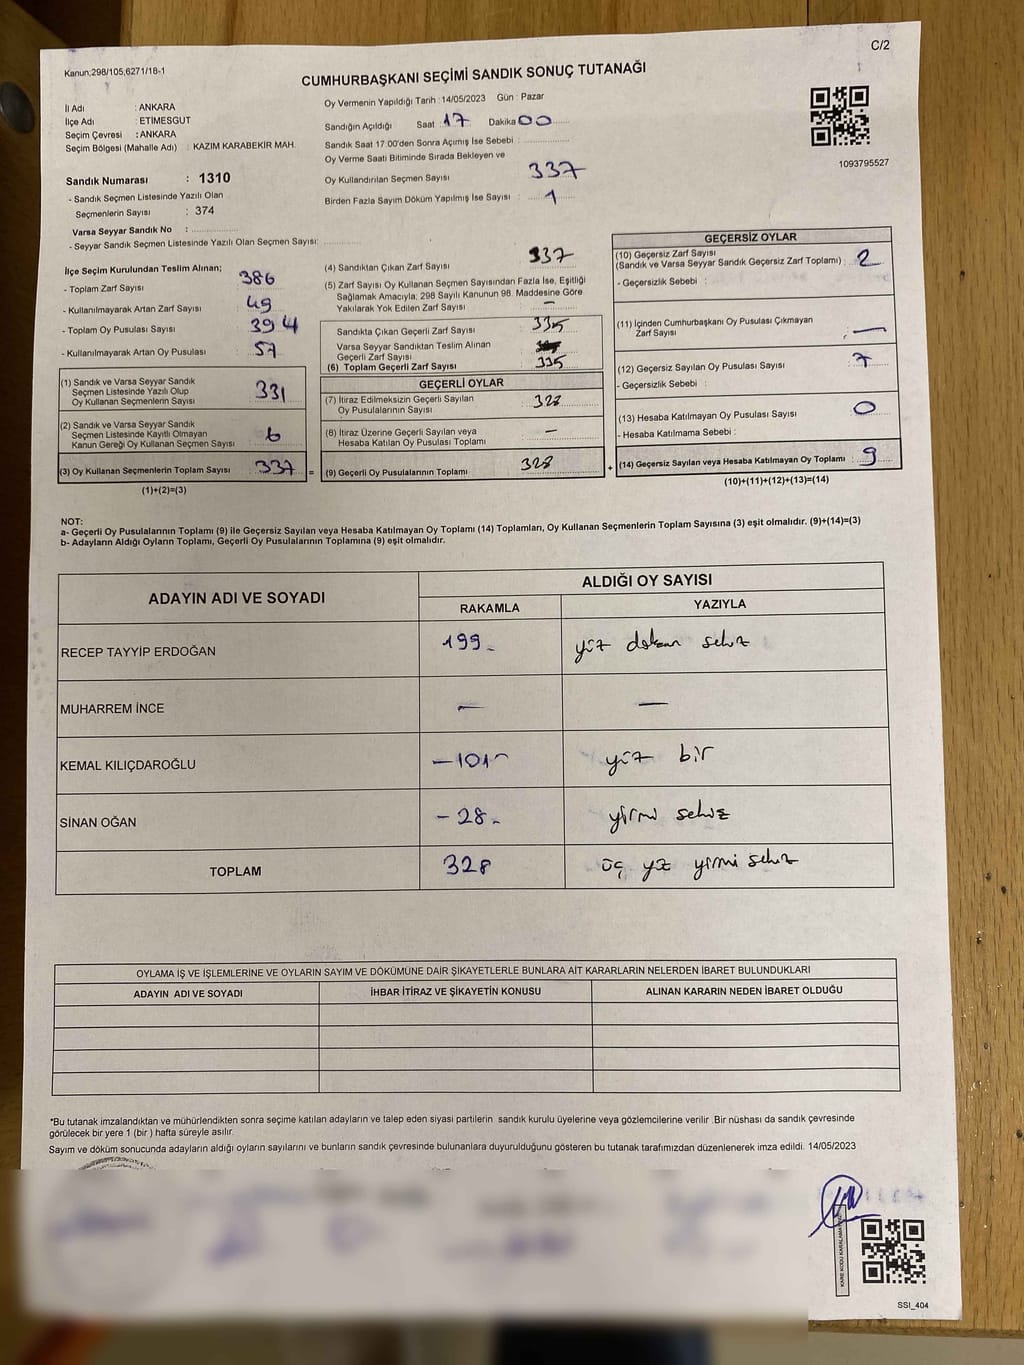 C/2
Kanun;298/105,6271/18-1
CUMHURBAŞKANI SEÇİMİ SANDIK SONUÇ TUTANAĞI
İl Adı : ANKARA
İlçe Adı : ETIMESGUT
Seçim Çevresi : ANKARA
Seçim Bölgesi (Mahalle Adı) : KAZIM KARABEKIR MAH.
Sandık Numarası : 1310
- Sandık Seçmen Listesinde Yazılı Olan
Seçmenlerin Sayısı : 374
Varsa Seyyar Sandık No :
- Seyyar Sandık Seçmen Listesinde Yazılı Olan Seçmen Sayısı:
Oy Vermenin Yapıldığı Tarih : 14/05/2023 Gün : Pazar
Sandığın Açıldığı Saat 17 Dakika 00
Sandık Saat 17:00'den Sonra Açımış İse Sebebi :
Oy Verme Saati Bitiminde Sırada Bekleyen ve
Oy Kullandırılan Seçmen Sayısı 337
Birden Fazla Sayım Döküm Yapılmış İse Sayısı : 1
1093795527
İlçe Seçim Kurulundan Teslim Alınan;
- Toplam Zarf Sayısı : 386
- Kullanılmayarak Artan Zarf Sayısı : 49
- Toplam Oy Pusulası Sayısı : 394
- Kullanılmayarak Artan Oy Pusulası : 57
(1) Sandık ve Varsa Seyyar Sandık
Seçmen Listesinde Yazılı Olup
Oy Kullanan Seçmenlerin Sayısı : 331
(2) Sandık ve Varsa Seyyar Sandık
Seçmen Listesinde Kayıtlı Olmayan
Kanun Gereği Oy Kullanan Seçmen Sayısı : 6
(3) Oy Kullanan Seçmenlerin Toplam Sayısı : 337 =
(1)+(2)=(3)
(4) Sandıktan Çıkan Zarf Sayısı : 337
(5) Zarf Sayısı Oy Kullanan Seçmen Sayısından Fazla İse, Eşitliği
Sağlamak Amacıyla; 298 Sayılı Kanunun 98. Maddesine Göre
Yakılarak Yok Edilen Zarf Sayısı : —
Sandıkta Çıkan Geçerli Zarf Sayısı : 335
Varsa Seyyar Sandıktan Teslim Alınan
Geçerli Zarf Sayısı :
(6) Toplam Geçerli Zarf Sayısı : 335
GEÇERLİ OYLAR
(7) İtiraz Edilmeksizin Geçerli Sayılan
Oy Pusulalarının Sayısı : 328
(8) İtiraz Üzerine Geçerli Sayılan veya
Hesaba Katılan Oy Pusulası Toplamı : —
(9) Geçerli Oy Pusulalarının Toplamı 328 +
GEÇERSİZ OYLAR
(10) Geçersiz Zarf Sayısı
(Sandık ve Varsa Seyyar Sandık Geçersiz Zarf Toplamı) : 2
- Geçersizlik Sebebi :
(11) İçinden Cumhurbaşkanı Oy Pusulası Çıkmayan
Zarf Sayısı : —
(12) Geçersiz Sayılan Oy Pusulası Sayısı : 7
- Geçersizlik Sebebi :
(13) Hesaba Katılmayan Oy Pusulası Sayısı : 0
- Hesaba Katılmama Sebebi :
(14) Geçersiz Sayılan veya Hesaba Katılmayan Oy Toplamı : 9
(10)+(11)+(12)+(13)=(14)
NOT:
a- Geçerli Oy Pusulalarının Toplamı (9) ile Geçersiz Sayılan veya Hesaba Katılmayan Oy Toplamı (14) Toplamları, Oy Kullanan Seçmenlerin Toplam Sayısına (3) eşit olmalıdır. (9)+(14)=(3)
b- Adayların Aldığı Oyların Toplamı, Geçerli Oy Pusulalarının Toplamına (9) eşit olmalıdır.
ADAYIN ADI VE SOYADI ALDIĞI OY SAYISI
RAKAMLA YAZIYLA
RECEP TAYYİP ERDOĞAN 199- yüz doksan sekiz
MUHARREM İNCE — —
KEMAL KILIÇDAROĞLU -101- yüz bir
SİNAN OĞAN -28- yirmi sekiz
TOPLAM 328 üç yüz yirmi sekiz
OYLAMA İŞ VE İŞLEMLERİNE VE OYLARIN SAYIM VE DÖKÜMÜNE DAİR ŞİKAYETLERLE BUNLARA AİT KARARLARIN NELERDEN İBARET BULUNDUKLARI
ADAYIN ADI VE SOYADI İHBAR İTİRAZ VE ŞİKAYETİN KONUSU ALINAN KARARIN NEDEN İBARET OLDUĞU
*Bu tutanak imzalandıktan ve mühürlendikten sonra seçime katılan adayların ve talep eden siyasi partilerin sandık kurulu üyelerine veya gözlemcilerine verilir. Bir nüshası da sandık çevresinde
görülecek bir yere 1 (bir ) hafta süreyle asılır.
Sayım ve döküm sonucunda adayların aldığı oyların sayılarını ve bunların sandık çevresinde bulunanlara duyurulduğunu gösteren bu tutanak tarafımızdan düzenlenerek imza edildi. 14/05/2023
SSI_404